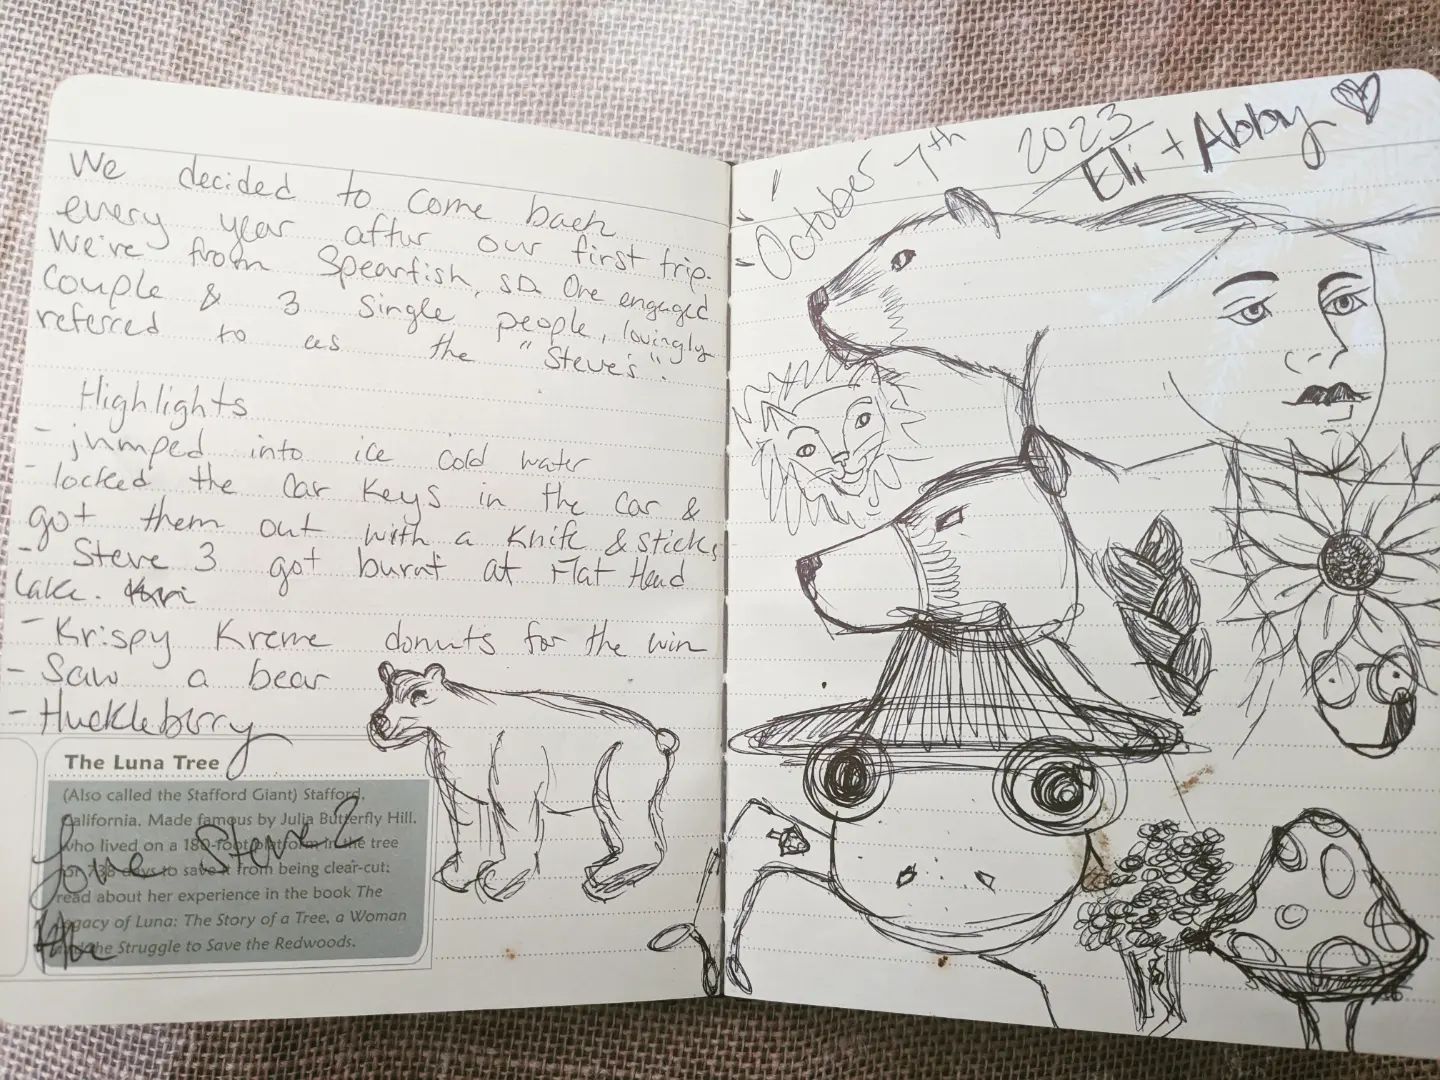 We decided to come back
every year aftur our first trip.
We're from Spearfish, SD. One engaged
couple & 3 single people, lovingly
referred to as the "Steve's".
Highlights
- jumped into ice cold water
- locked the car keys in the car &
got them out with a knife & sticks
- Steve 3 got burnt at Flat Head
Lake.
- Krispy Kreme donuts for the win
- Saw a bear
- Huckleberry
The Luna Tree
(Also called the Stafford Giant) Stafford,
California. Made famous by Julia Butterfly Hill,
who lived on a 180-foot platform in the tree
for 738 days to save it from being clear-cut;
read about her experience in the book The
Legacy of Luna: The Story of a Tree, a Woman
and the Struggle to Save the Redwoods.
Love Steve 2
October 7th 2023
Eli + Abby